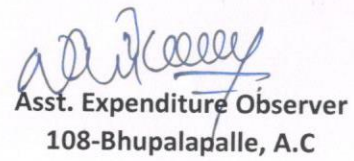 Asst. Expenditure Observer
108-Bhupalapalle, A.C